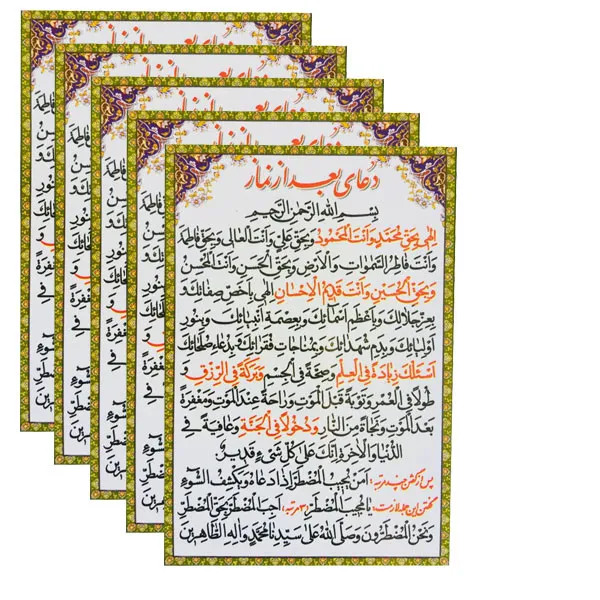 دعای بعد از نماز
بِسْمِ اللهِ الرَّحْمٰنِ الرَّحِیْمِ
اِلٰهی بِحَقِّ مُحَمَّدٍ وَاَنْتَ الْمَحْمُودُ وَبِحَقِّ عَلِیٍّ وَاَنْتَ الْعَالی وَبِحَقِّ فاطِمَةَ
وَاَنْتَ فَاطِرُ السَّمٰوَاتِ وَالْاَرْضِ وَبِحَقِّ الْحَسَنِ وَاَنْتَ الْمُحْسِنُ
وَبِحَقِّ الْحُسَیْنِ وَاَنْتَ قَدیمُ الْاِحْسَانِ اِلٰهی بِاَخَصِّ صِفَاتِكَ وَ
بِعِزِّ جَلَالِكَ وَبِاَعْظَمِ اَسْمَائِكَ وَبِعِصْمَةِ اَنْبِیَائِكَ وَبِنُورِ
اَوْلِیَائِكَ وَبِدَمِ شُهَدَائِكَ وَبِمُنَاجَاتِ فُقَرَائِكَ وَبِدُعَاءِ صُلَحَائِكَ
اَسْئَلُكَ زِیَادَةً فِی الْعِلْمِ وَصِحَّةً فِی الْجِسْمِ وَبَرَكَةً فِی الرِّزْقِ وَ
طُولًا فِی الْعُمْرِ وَتَوْبَةً قَبْلَ الْمَوْتِ وَرَاحَةً عِنْدَ الْمَوْتِ وَمَغْفِرَةً
بَعْدَ الْمَوْتِ وَنَجَاةً مِنَ النَّارِ وَدُخُولًا فِی الْجَنَّةِ وَعَافِیَةً فِی
الدُّنْیَا وَالْآخِرَةِ اِنَّكَ عَلٰی كُلِّ شَیْءٍ قَدیرٌ
پس از گفتن چند مرتبه: اَمَّنْ یُجیبُ الْمُضْطَرَّ اِذَا دَعَاهُ وَیَكْشِفُ السُّوءَ
گفتن این جمله لازمست: یَا مُجیبَ الْمُضْطَرِّ ۳ مرتبه، اَجِبِ الْمُضْطَرَّ بِحَقِّ الْمُضْطَرِّ
وَنَحْنُ الْمُضْطَرُّونَ وَصَلَّی اللهُ عَلٰی سَیِّدِنَا مُحَمَّدٍ وَآلِهِ الطَّاهِرینَ